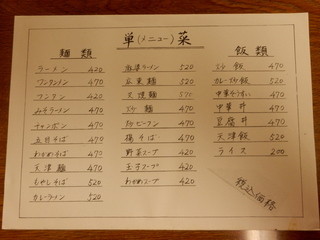 単(メニュー)菜
麺類
ラーメン 420
ワンタンメン 470
ワンタン 420
みそラーメン 470
チャンポン 470
五目そば 470
わかめそば 470
天津麺 470
もやしそば 520
カレーラーメン 520
ラーメン 520
広東麺 520
天津麺 570
麺 470
ビーフン 470
揚そば 470
野菜スープ 420
玉子スープ 420
わかめスープ 420
飯類
飯 470
カレー 飯 520
中華ぞうすい 470
中華丼 470
麻婆丼 470
天津飯 520
ライス 200
税込価格